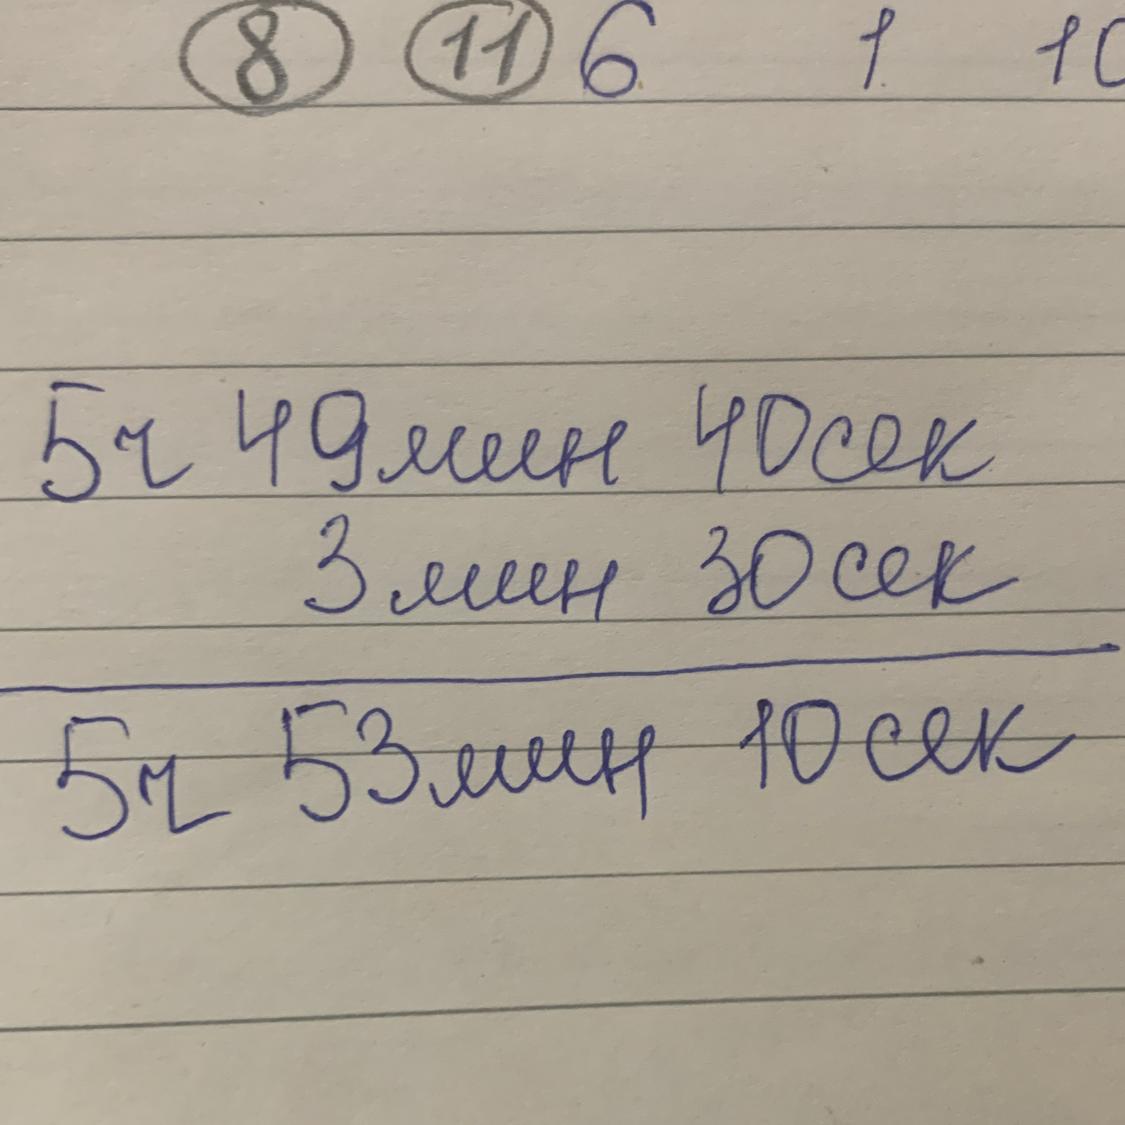 8 11 6 1 10
5ч 49мин 40сек
3мин 30сек
5ч 53мин 10сек